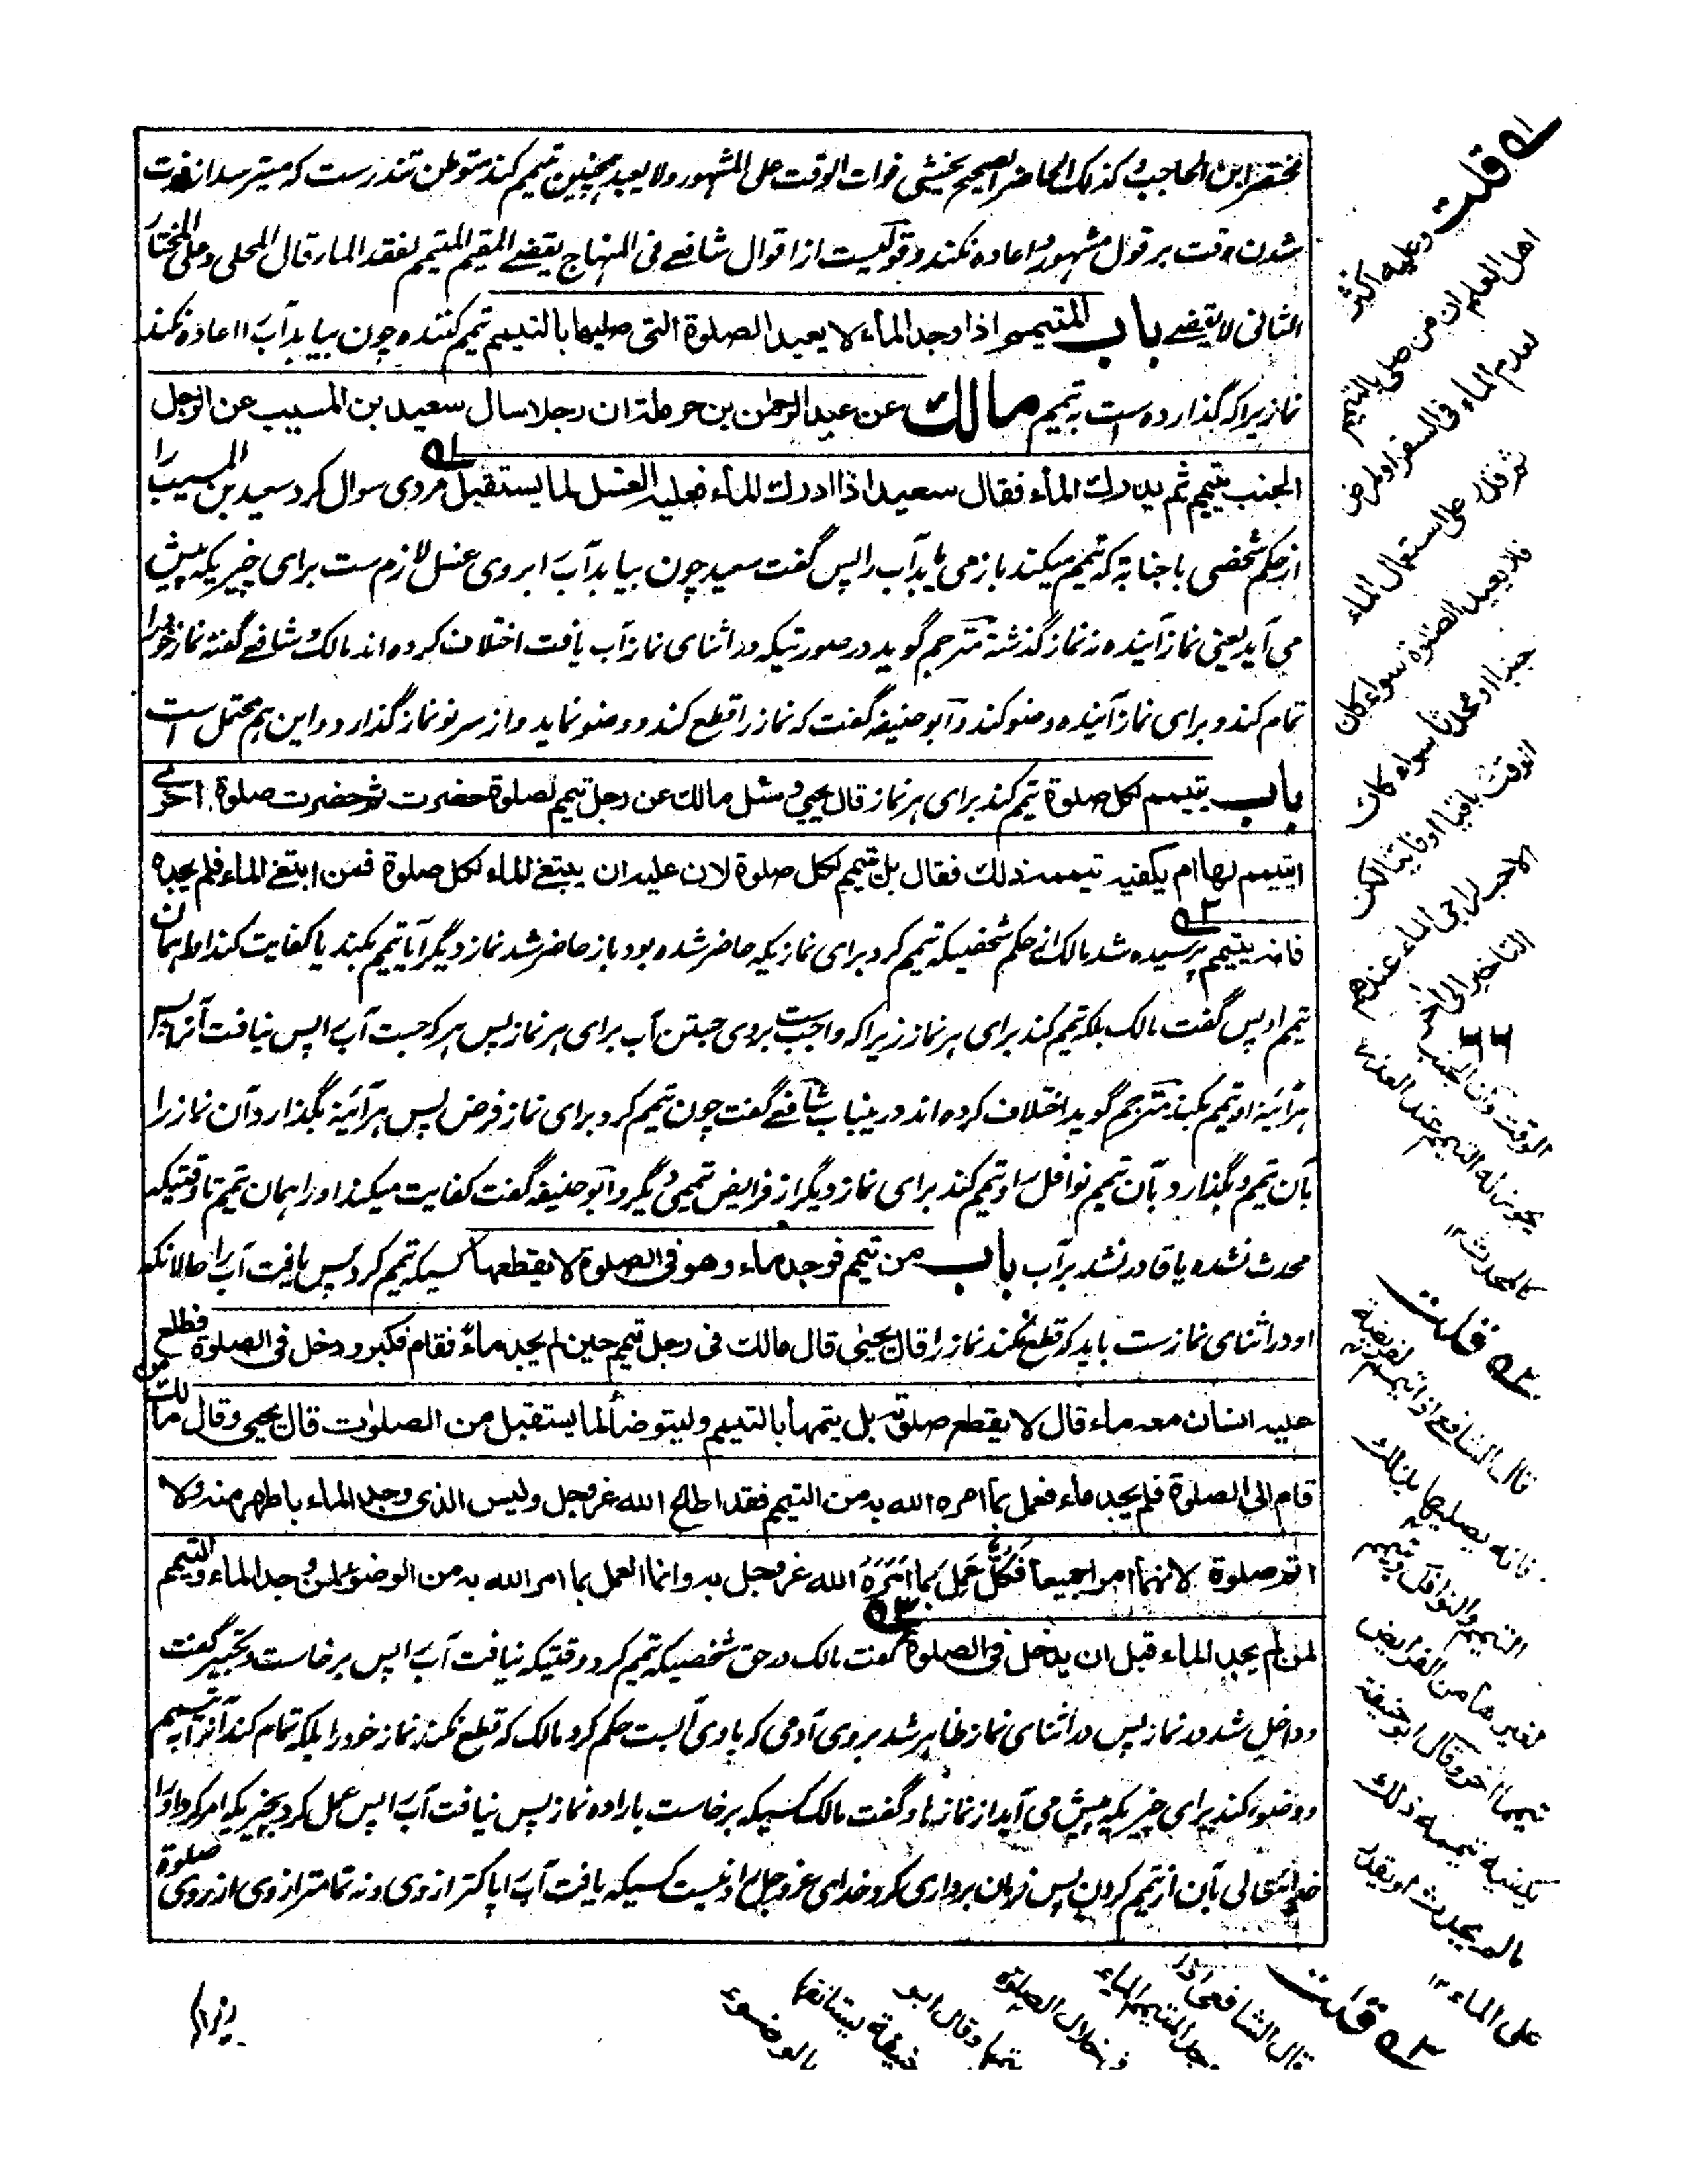 مختصر ابن الحاجب وكذلك الحاضر الصحيح يخشى فوات الوقت على المشهور ولا يعيد همچنین تیمم کند متوطن تندرست که میترسد از فوت
شدن وقت بر قول مشهور و اعاده نکند و قولیست از اقوال شافعے فى المنهاج يقضے المقيم المتيمم لفقد الماء قال المحلى وعلى المختار
الثانى لا يقضے باب المتيمم اذا وجد الماء لا يعيد الصلوة التى صليها بالتيمم تیمم کننده چون بیابد آب را اعاده نکند
نماز زیرا که گذارده است به تیمم مالك عن عبد الرحمن بن حرملة ان رجلا سال سعيد بن المسيب عن الرجل
الجنب يتيمم ثم يدرك الماء فقال سعيد اذا ادرك الماء فعليه الغسل لما يستقبل مردی سوال کرد سعید بن المسیب را
از حکم شخصی با جنابة که تیمم میکند باز می یابد آب را پس گفت سعید چون بیابد آب را بروی غسل لازم ست برای چیزیکه پیش
می آید یعنی نماز آینده نه نماز گذشته مترجم گوید در صورتیکه در اثنای نماز آب یافت اختلاف کرده اند مالک و شافعے گفته نماز خود را
تمام کند و برای نماز آینده وضو کند و ابو حنیفه گفت که نماز را قطع کند و وضو نماید و از سر نو نماز گذارد و این هم محتمل است
باب يتيمم لكل صلوة تیمم کند برای هر نماز قال يحيى وسئل مالك عن رجل تيمم لصلوة حضرت ثم حضرت صلوة اخرے
ايتيمم لها ام يكفيه تيممه ذلك فقال بل يتيمم لكل صلوة لان عليه ان يبتغے الماء لكل صلوة فمن ابتغے الماء فلم يجده
فانه يتيمم پرسیده شد مالک از حکم شخصیکه تیمم کرد برای نمازیکه حاضر شده بود باز حاضر شد نماز دیگر آیا تیمم بکند یا کفایت کند او را همان
تیمم او پس گفت مالک بلکه تیمم کند برای هر نماز زیرا که واجب ست بروی جستن آب برای هر نماز پس هر که جست آب را پس نیافت آنرا پس
هر آئینه او تیمم بکند مترجم گوید اختلاف کرده اند درینباب شافعے گفت چون تیمم کرد برای نماز فرض پس هر آئینه بگذارد آن نماز را
بآن تیمم و بگذارد بآن تیمم نوافل را و تیمم کند برای نماز دیگر از فرایض تیممی دیگر و ابو حنیفه گفت کفایت میکند او را همان تیمم تا وقتیکه
محدث نشده یا قادر نشد بر آب باب من تيمم فوجد ماء وهو فى الصلوة لا يقطعها کسیکه تیمم کرد پس یافت آب را حالانکه
او در اثنای نماز ست باید که قطع نکند نماز را قال يحيى قال مالك فى رجل تيمم حين لم يجد ماء فقام فكبر ودخل فى الصلوة فطلع
عليه انسان معه ماء قال لا يقطع صلوته بل يتمها بالتيمم وليتوضأ لما يستقبل من الصلوت قال يحيى وقال مالك من
قام الى الصلوة فلم يجد ماء فعمل بما امره الله به من التيمم فقد اطاع الله عز وجل وليس الذى وجد الماء باطهر منه ولا
اتم صلوة لانهما امرا جميعا فَكُلٌّ عَمِلَ بِمَا اَمَرَهُ الله عز وجل به وانما العمل بما امر الله به من الوضوء لمن وجد الماء والتيمم
لمن لم يجد الماء قبل ان يدخل فى الصلوة گفت مالک در حق شخصیکه تیمم کرد وقتیکه نیافت آب را پس برخاست و تکبیر گفت
و داخل شد در نماز پس در اثنای نماز ظاهر شد بروی آدمی که با وی آبست حکم کرد مالک که قطع نکند نماز خود را بلکه تمام کند آنرا به تیمم
و وضو کند برای چیزیکه پیش می آید از نماز ها و گفت مالک کسیکه برخاست باراده نماز پس نیافت آب را پس عمل کرد بچیزیکه امر کرد او را
خدایتعالی بآن از تیمم کردن پس فرمان برداری کرد خدای عز وجل را و نیست کسیکه یافت آب را پاکتر از وی و نه تمامتر از وی از روی صلوة
له قلت وعليه اكثر
اهل العلم ان من صلى بالتيمم
لعدم الماء فى السفر او لمرض
ثم قدر على استعمال الماء
فلا يعيد الصلوة سواء كان
جنبا او محدثا سواء كان
الوقت باقيا او فائتا لكن
الاحب لراجى الماء عندهم
التاخير الى آخر
الوقت وان الجنب
يجوز له التيمم عند العذر
كالمحدث ١٢
٢ه قلت
قال الشافعے اذا تيمم لفريضة
فانه يصليها بذلك
التيمم والنوافل ويتيمم
لغيرها من الفرايض
تيمما آخر وقال ابو حنيفة
يكفيه تيممه ذلك
ما لم يحدث او يقدر
على الماء ١٢
٣ه قلت
قال الشافعى اذا
وجد المتيمم الماء
فى خلال الصلوة
يتمها وقال ابو
حنيفة يستانفها
بالوضوء
زیرا